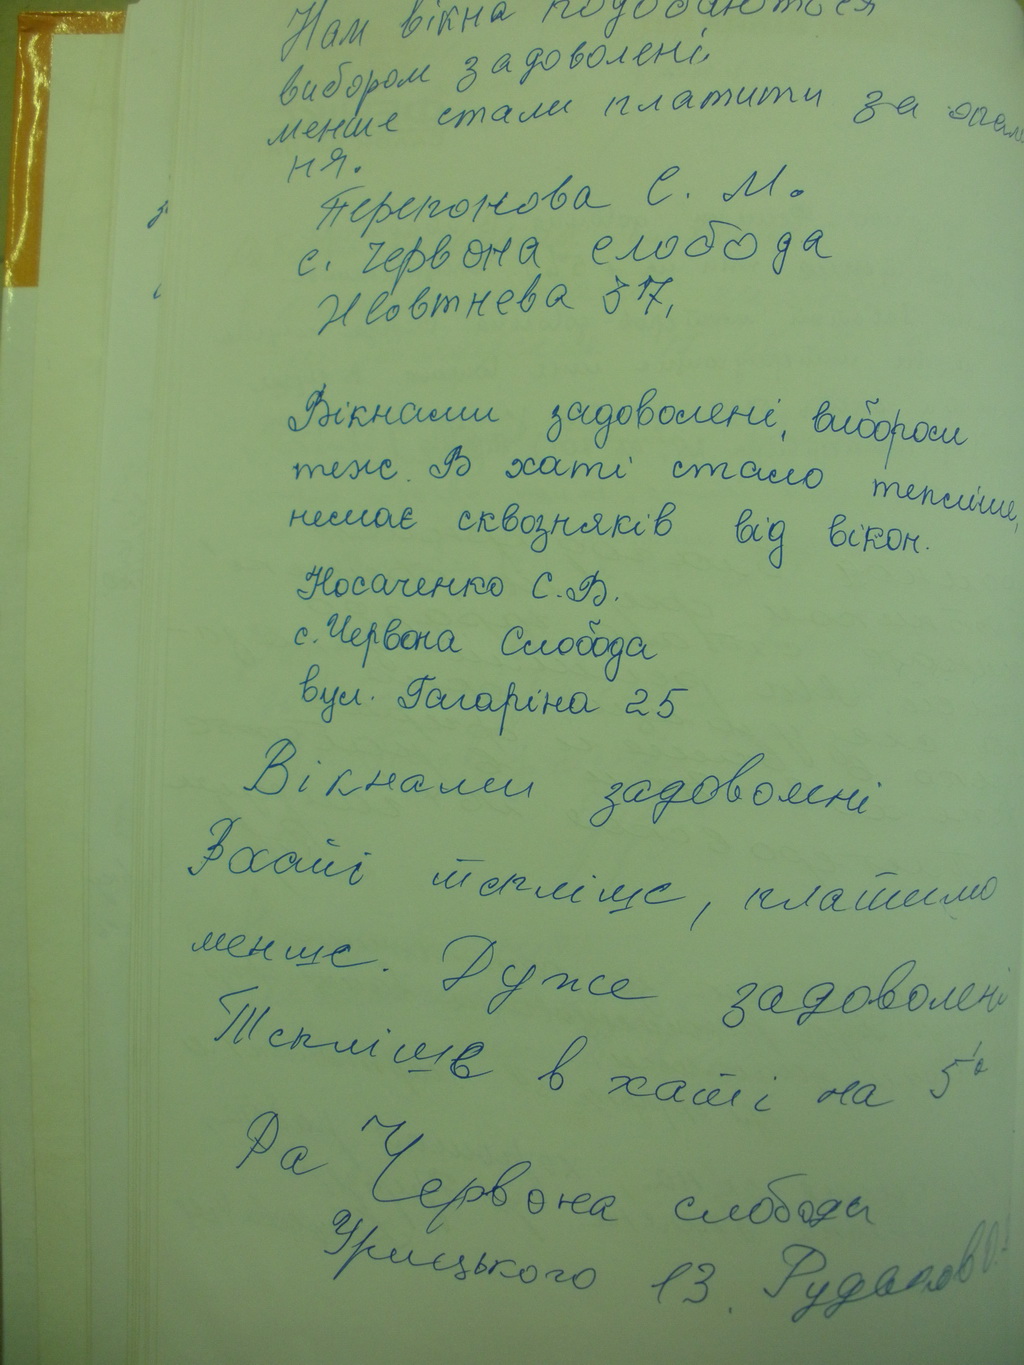 Нам вікна подобаються
вибором задоволені.
менше стали платити за опален
ня.
С. М.
с. Червона слобода
Жовтнева 37,
Вікнами задоволені, вибором
теж. В хаті стало тепліше,
немає сквозняків від вікон.
Носаченко С.В.
с. Червона Слобода
вул. Гагаріна 25
Вікнами задоволені
В хаті тепліше, платимо
менше. Дуже задоволені
Тепліше в хаті на 5°
Червона слобода
Урицького 13.